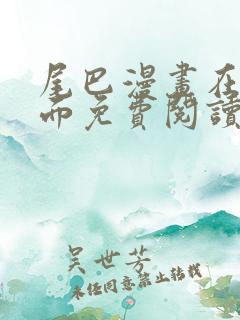 尾巴漫畫在
而免費閱讀
吴世芳
未经同意禁止转载